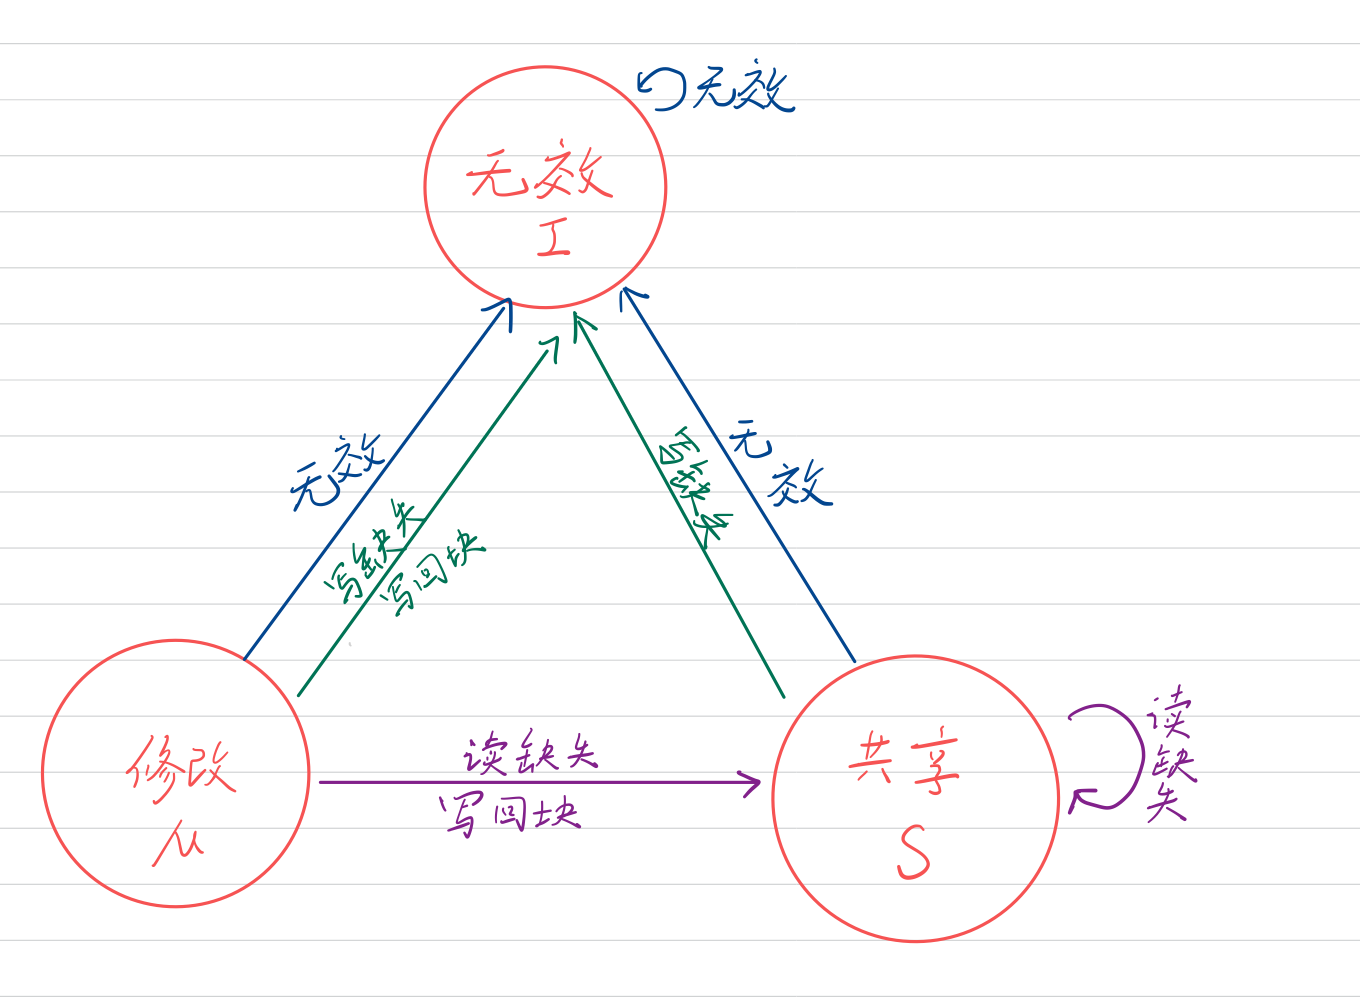 无效
无效
I
无效
写缺失
写回块
写缺失
无效
读缺失
写回块
修改
M
共享
S
读缺失